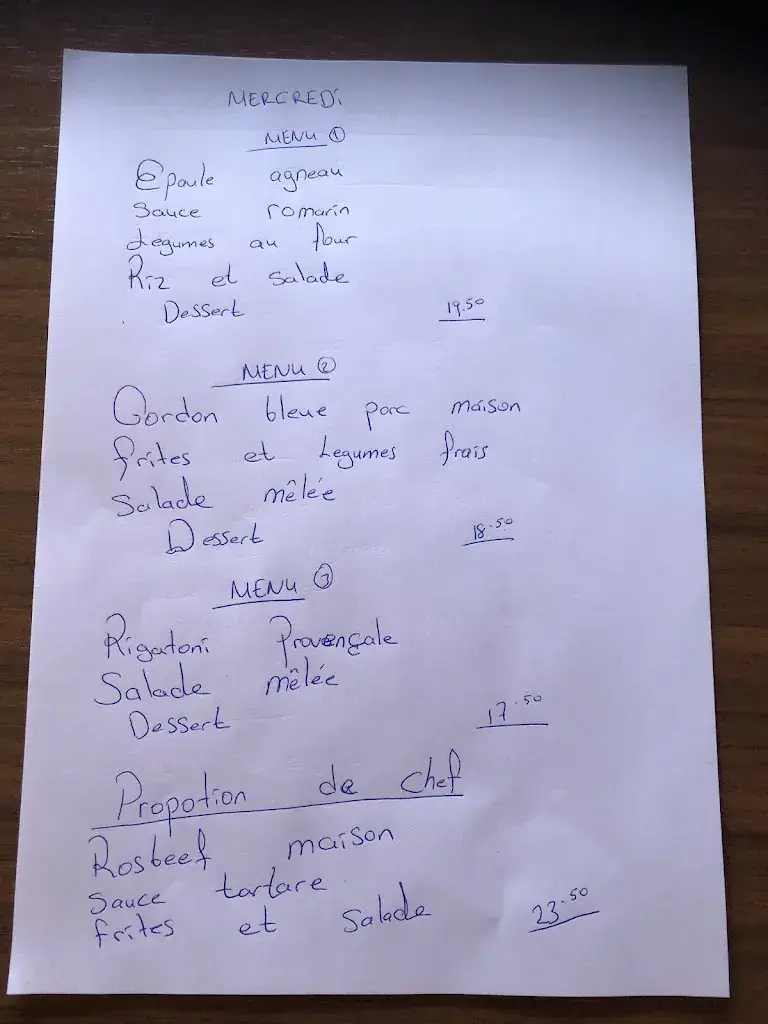 MERCREDi
MENU ①
Epaule agneau
Sauce romarin
Legumes au four
Riz et salade
Dessert 19.50
MENU ②
Cordon bleue porc maison
frites et Legumes frais
Salade mêlée
Dessert 18.50
MENU ③
Rigatoni Provençale
Salade mêlée
Dessert 17.50
Propotion de chef
Rosbeef maison
Sauce tartare
frites et Salade 23.50